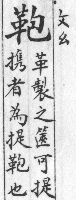 鞄
ㄆㄠ
革製之篋可提
携者為提鞄也